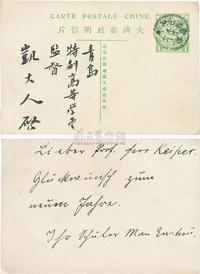 CARTE POSTALE–CHINE.
大清郵政明信片
青島
特別高等學堂
監督
凱大人啟
Lieber Prof. Herr Keiper.
Glückwunsch zum
neuen Jahre.
Ihr Schüler Man En-hou.